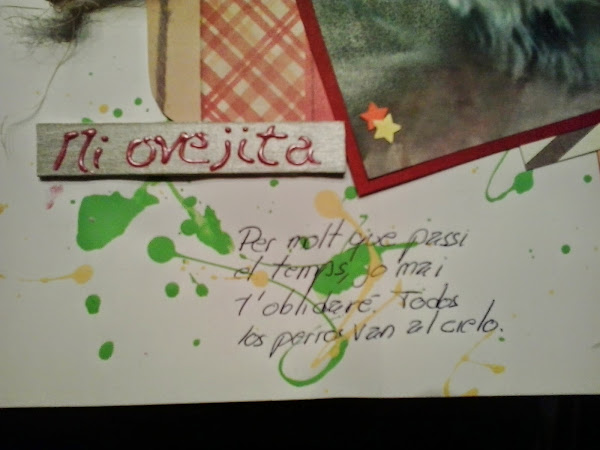 Mi ovejita
Per molt que passi
el temps, jo mai
t'oblidaré. Todos
los perros van al cielo.